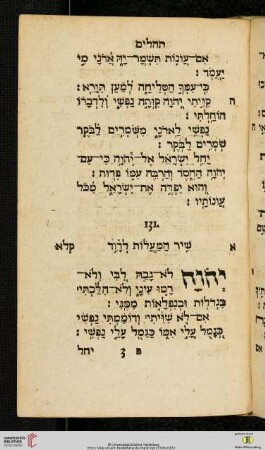 תהלים
אִם־עֲוֹנוֹת תִּשְׁמָר־יָהּ אֲדֹנָי מִי
יַעֲמֹד׃
כִּי־עִמְּךָ הַסְּלִיחָה לְמַעַן תִּוָּרֵא׃
ה קִוִּיתִי יְהֹוָה קִוְּתָה נַפְשִׁי וְלִדְבָרוֹ
הוֹחָלְתִּי׃
נַפְשִׁי לַאדֹנָי מִשֹּׁמְרִים לַבֹּקֶר
שֹׁמְרִים לַבֹּקֶר׃
יַחֵל יִשְׂרָאֵל אֶל־יְהֹוָה כִּי־עִם
יְהֹוָה הַחֶסֶד וְהַרְבֵּה עִמּוֹ פְדוּת׃
וְהוּא יִפְדֶּה אֶת־יִשְׂרָאֵל מִכֹּל
עֲוֹנוֹתָיו׃
131.
א שִׁיר הַמַּעֲלוֹת לְדָוִד קלא
יְהֹוָה לֹא־גָבַהּ לִבִּי וְלֹא־
רָמוּ עֵינַי וְלֹא־הִלַּכְתִּי
בִּגְדֹלוֹת וּבְנִפְלָאוֹת מִמֶּנִּי׃
אִם־לֹא שִׁוִּיתִי וְדוֹמַמְתִּי נַפְשִׁי
כְּגָמֻל עֲלֵי אִמּוֹ כַּגָּמֻל עָלַי נַפְשִׁי׃
יחל
UNIVERSITÄTS-
BIBLIOTHEK
HEIDELBERG
© Universitätsbibliothek Heidelberg